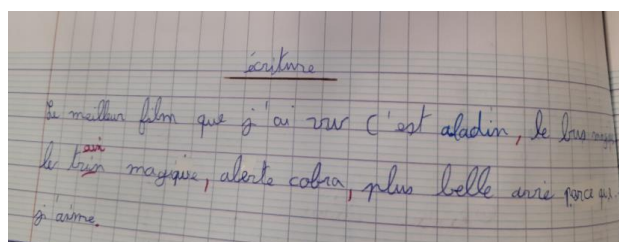 écriture
le meilleur film que j'ai vu c'est aladin, le bus
le train magique, alerte cobra, plus belle avie parce que
j'aime.